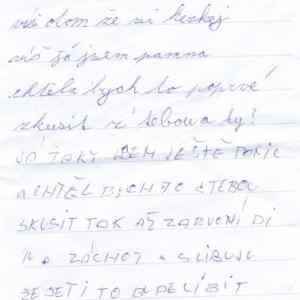 že si hezkej
víš já jsem panna
chtěla bych to poprvé
zkusit s tebou a ty?
JÓ TAKY JSEM JEŠTĚ PANIC
A CHTĚL BYCH TO STEBOU
SKUSIT TAK AŽ ZAZVONÍ DI
NA ZÁCHOT A SLIBUJU
ŽE SETI TO BUDE LÍBIT